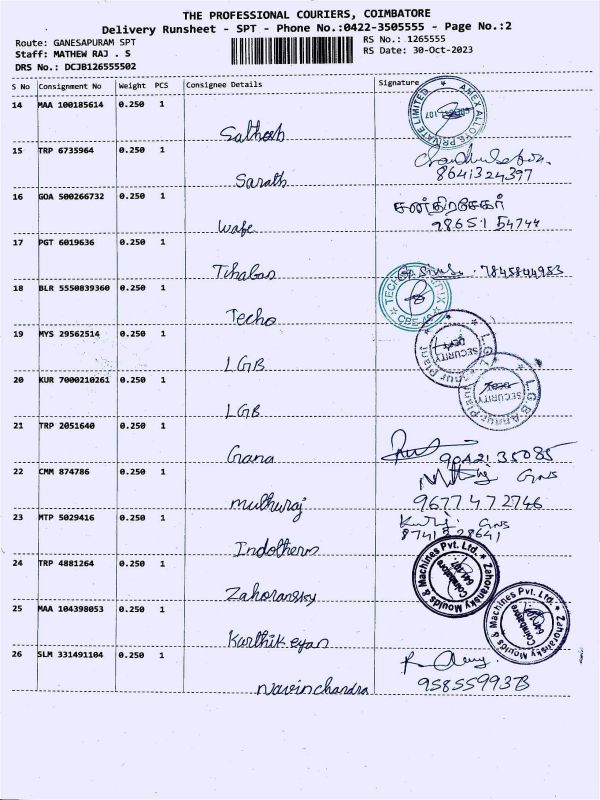 THE PROFESSIONAL COURIERS, COIMBATORE
Delivery Runsheet - SPT - Phone No.:0422-3505555 - Page No.:2
Route: GANESAPURAM SPT
RS No.: 1265555
Staff: MATHEW RAJ . S
RS Date: 30-Oct-2023
DRS No.: DCJB126555502
S No Consignment No Weight PCS Consignee Details Signature
14 MAA 100185614 0.250 1
AMEX ALLOYS PRIVATE LIMITED
Sathosh
15 TRP 6735964 0.250 1
8641324397
Sarath
16 GOA 500266732 0.250 1
சந்திரசேகர்
98651 54744
Wafe
17 PGT 6019636 0.250 1
7845844953
18 BLR 5550839360 0.250 1
Techo
19 MYS 29562514 0.250 1
L.G.B. Annur Plant
SECURITY
LGB
20 KUR 7000210261 0.250 1
L.G.B. Annur Plant
SECURITY
LGB
21 TRP 2051640 0.250 1
90421 35085
Gana
22 CMM 874786 0.250 1
9677472746
muthuraj
23 MTP 5029416 0.250 1
8741528641
Indotherm
24 TRP 4881264 0.250 1
Zahoransky Moulds & Machines Pvt. Ltd.
Coimbatore
Zahoransky
25 MAA 104398053 0.250 1
Zahoransky Moulds & Machines Pvt. Ltd.
Coimbatore
Karthikeyan
26 SLM 331491104 0.250 1
9585599373
Navinchandra